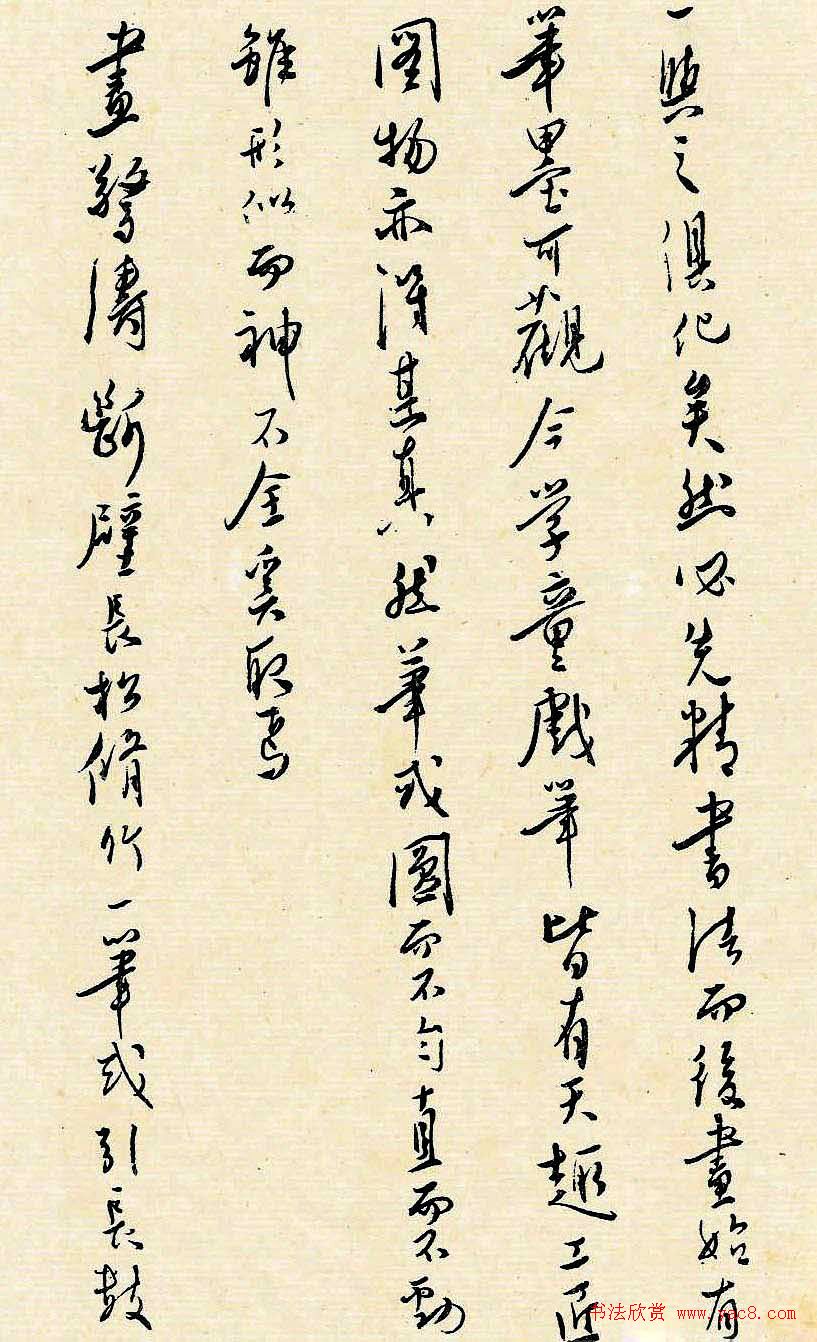 一與之俱化矣然必先精書法而後畫始有
筆墨可觀今学童戲筆皆有天趣工匠
图物亦得其真然筆或圓而不勻直而不勁
雖形似而神不全奚取焉
畫驚濤斷壁長松脩竹一筆或引長数
书法欣赏 www.yac8.com